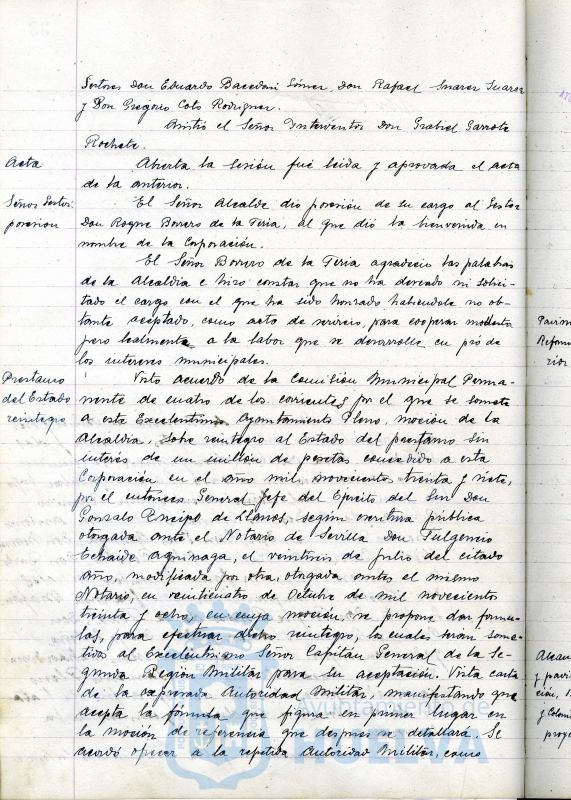 Señores Don Eduardo Bacedoni Gómez, Don Rafael Suarez Suarez
y Don Gregorio Coto Rodriguez.
Asistió el Señor Interventor Don Grabiel Garrote
Rochete.
Acta
Abierta la sesión fué leida y aprovada el acta
de la anterior.
Señor Gestor
posesion
El Señor Alcalde dió posesion de su cargo al Gestor
Don Roque Borrero de la Feria, al que dió la bienvenida en
nombre de la Corporación.
El Señor Borrero de la Feria agradecio las palabras
de la Alcaldia e hizo constar que no ha deseado ni solici-
tado el cargo con el que ha sido honrado habiendole no obs-
tante aceptado, como acto de servicio, para cooperar modesta
pero lealmente a la labor que se desarrolle en pró de
los intereses municipales.
Prestamo
del Estado
reintegro
Visto acuerdo de la Comisión Municipal Perma-
nente de cuatro de los corrientes, por el que se somete
a este Excelentisimo Ayuntamiento Pleno, moción de la
Alcaldia, sobre reintegro al Estado del prestamo sin
interés de un millón de pesetas concedido a esta
Corporación en el año mil novecientos treinta y siete,
por el entonces General Jefe del Ejercito del Sur Don
Gonzalo Queipo de Llanos, según escritura pública
otorgada ante el Notario de Sevilla Don Fulgencio
Echaide Aguinaga, el veintiseis de Julio del citado
año, modificada por otra, otorgada antes el mismo
Notario, en veinticuatro de Octubre de mil novecientos
treinta y ocho, en cuya moción se propone dos formu-
las, para efectuar dicho reintegro, las cuales seran some-
tidas al Excelentisimo Señor Capitán General de la Se-
gunda Región Militar para su aceptación. Vista carta
de la expresada Autoridad Militar, manifestando que
acepta la formula que figura en primer lugar en
la moción de referencia que despues se detallará. Se
acordó ofrecer a la repetida Autoridad Militar, como
Ayuntamiento de
Pavim
Reforma
rior
Alcan
y pavi
ción,
y Coloni
proye